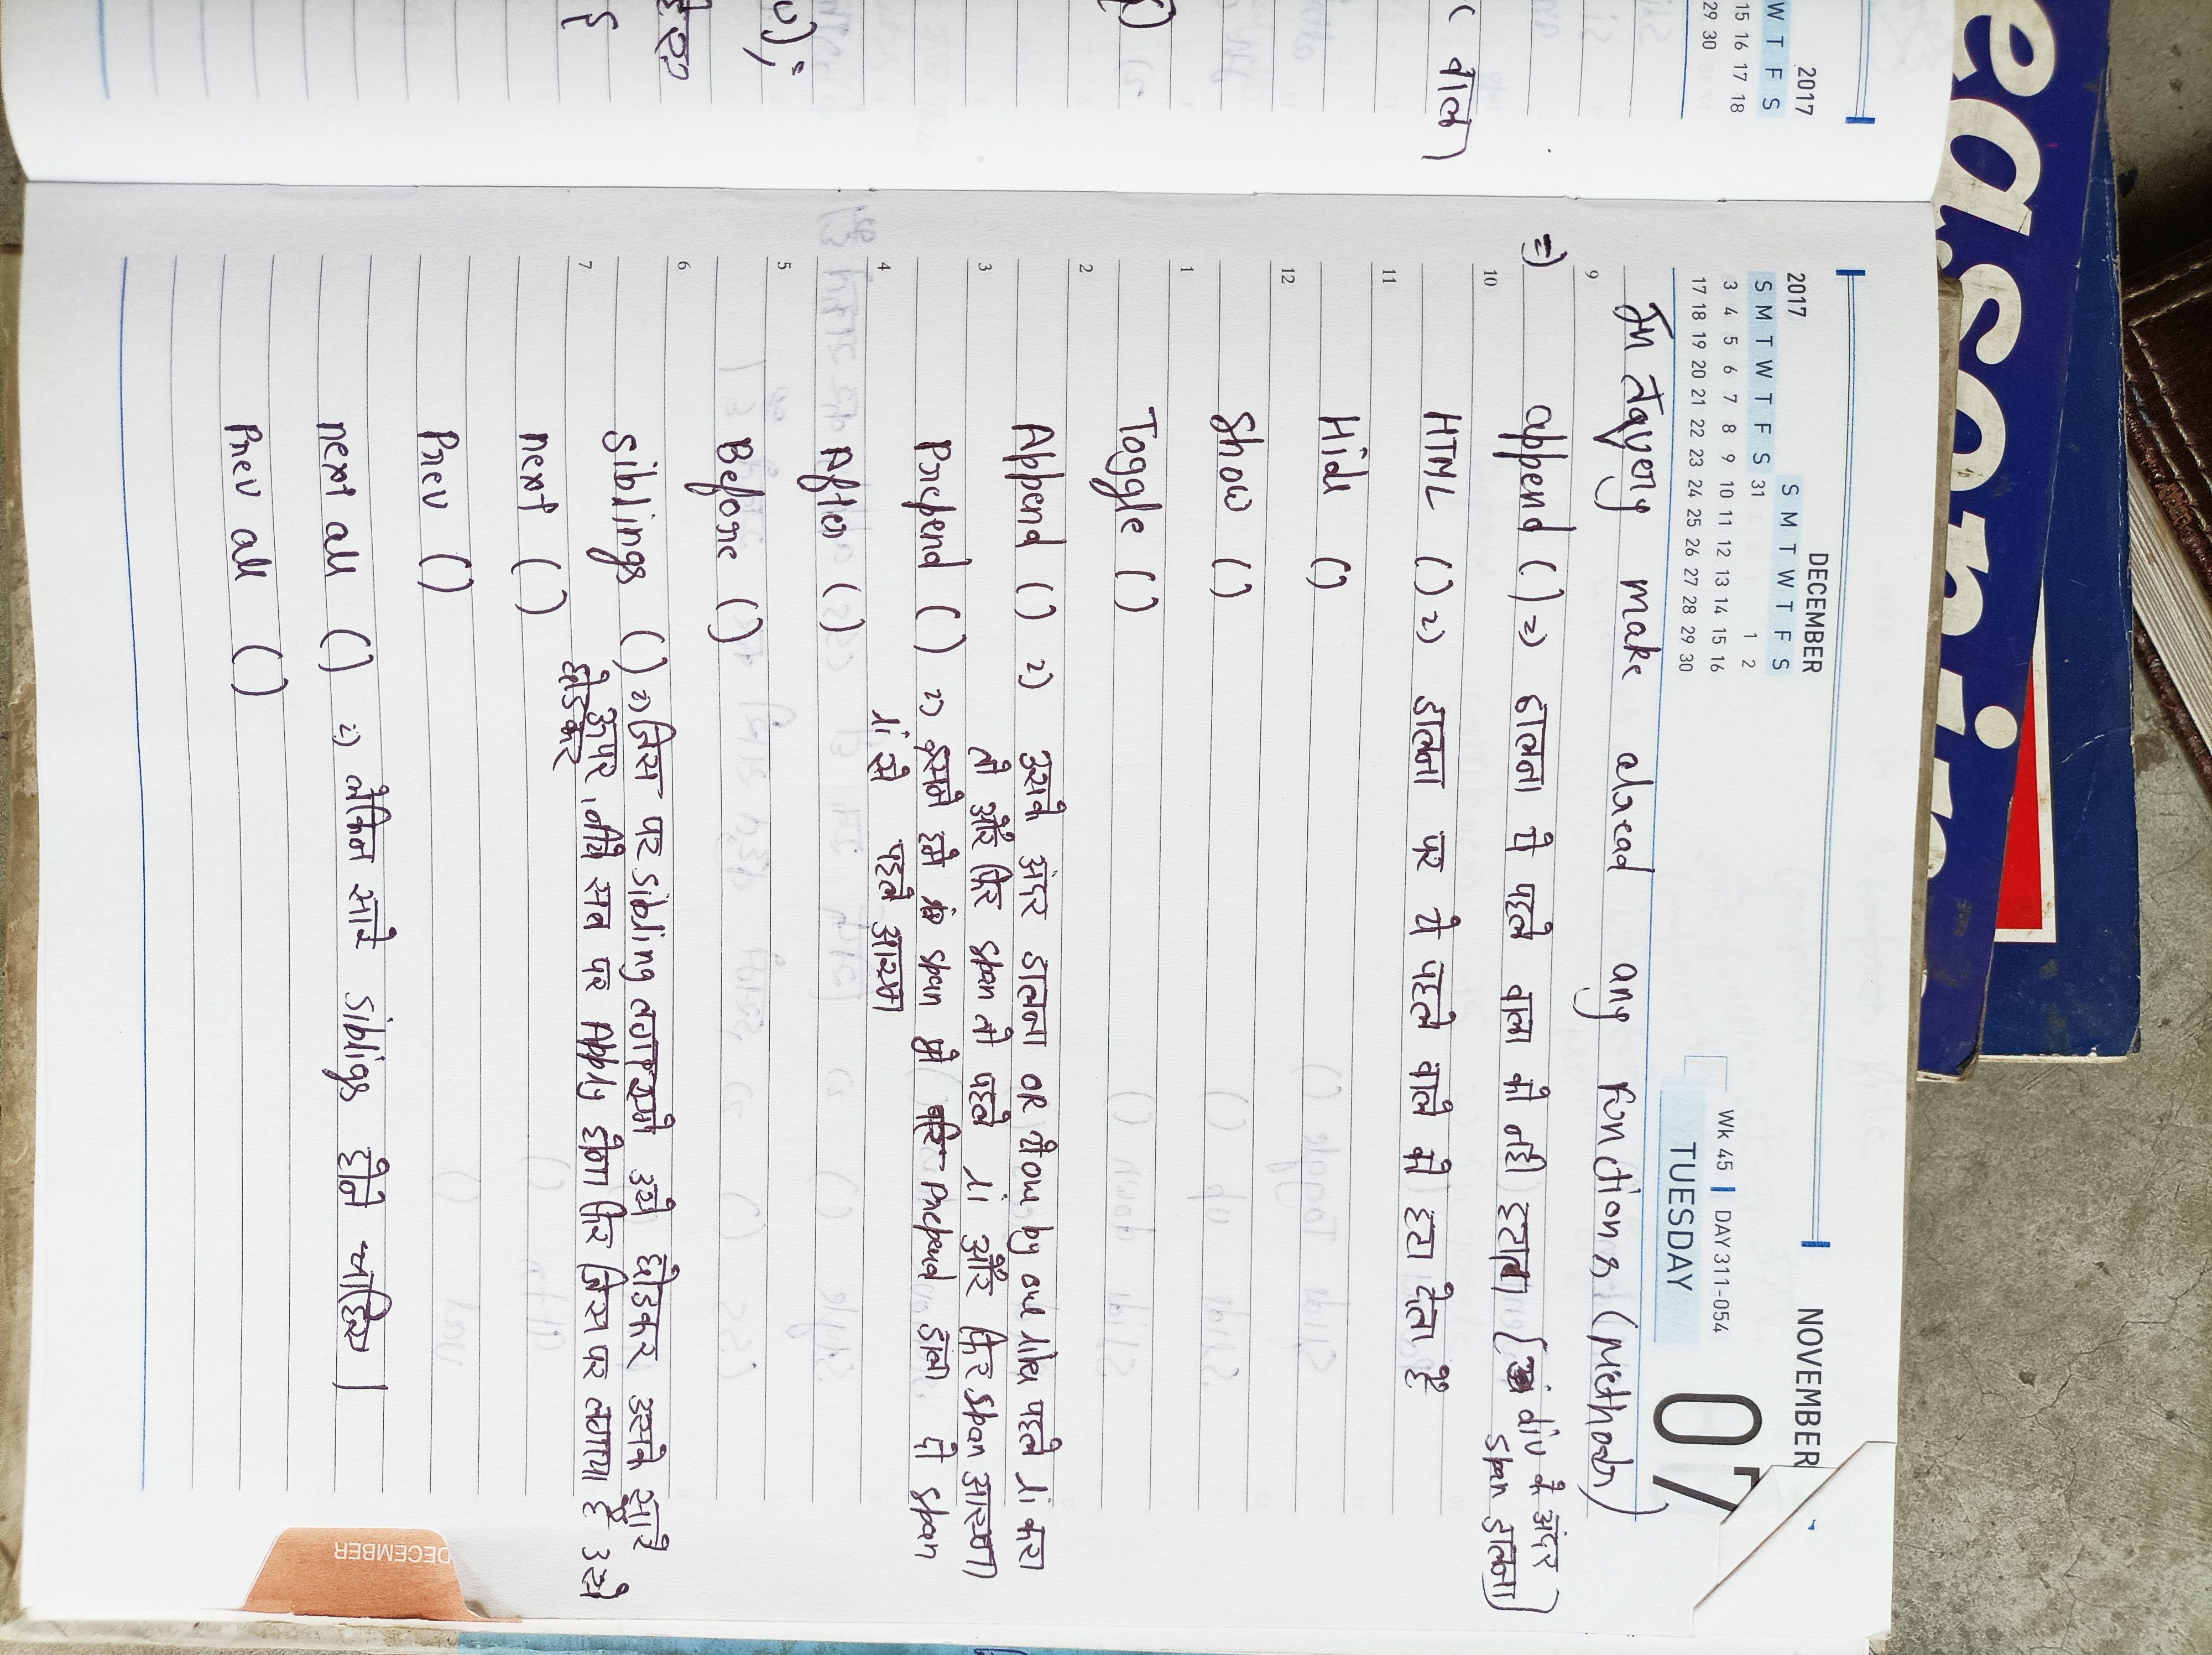 easonin
2017
W T F S
15 16 17 18
29 30
वाला
);
2017
DECEMBER
S M T W T F S
S M T W T F S
31 1 2
3 4 5 6 7 8 9 10 11 12 13 14 15 16
17 18 19 20 21 22 23 24 25 26 27 28 29 30
NOVEMBER
07
Wk 45 | DAY 311-054
TUESDAY
In Jquery make alread any functions (Methods)
9
=) append () => डालना ये पहले वाला को नही हटाता ( div के अंदर
span डालना)
10
HTML () => डालना पर ये पहले वाले को हटा देता है
11
Hide ()
12
Show ()
1
Toggle ()
2
Append () => उसके अंदर डालना OR ये one by one like पहले li करा
3
तो और फिर span तो पहले li और फिर span आएगा
Prepend () => इसमे हमे span Prepend डाला दो span
4
li से पहले आएगा
After ()
5
Before ()
6
siblings () => जिस पर sibling लगाएगे उसे छोडकर उसके सारे
ऊपर, नीचे सब पर Apply होगा फिर जिस पर लगाया है उसे
7
छोडकर
next ()
Prev ()
next all () => लेकिन सारे sibligs होने चाहिए |
Prev all ()
DECEMBER